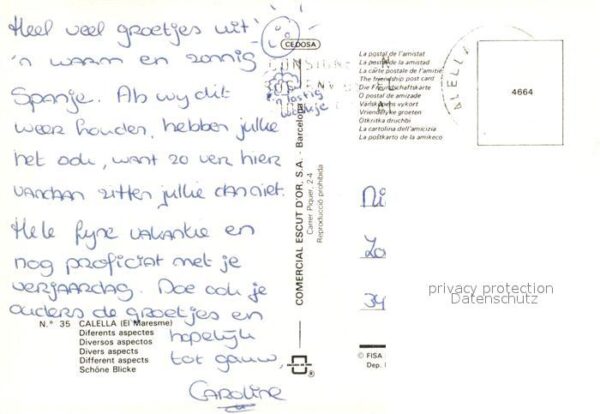 Heel veel groetjes uit
'n warm en zonnig
Spanje. Als wy dit
weer houden, hebben jullie
het ook, want zo ver hier
vandaan zitten jullie dan niet.
Hele fyne vakantie en
nog proficiat met je
verjaardag. Doe ook je
ouders de groetjes en
hopelijk
tot gauw,
Caroline
'n
wolkje
N.° 35 CALELLA (El Maresme)
Diferents aspectes
Diversos aspectos
Divers aspects
Different aspects
Schöne Blicke
CEDOSA
COMERCIAL ESCUT D'OR, S.A. - Barcelona
Carrer Piquer, 2-4
Reproducció prohibida
La postal de l'amistat
La postal de la amistad
La carte postale de l'amitié
The friendship post card
Die Freundschaftskarte
O postal de amizade
Vänskapens vykort
Vriendelyke groeten
Otkritka druchbi
La cartolina dell'amicizia
La postkarto de la amikeco
4664
Ni
Zo
34
privacy protection
Datenschutz
© FISA
Dep.